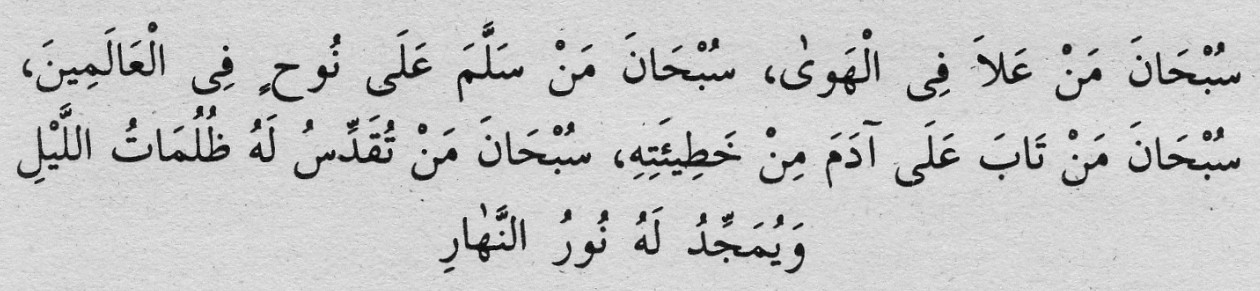 سُبْحَانَ مَنْ عَلاَ فِى الْهَوٰى، سُبْحَانَ مَنْ سَلَّمَ عَلَى نُوحٍ فِى الْعَالَمِينَ،
سُبْحَانَ مَنْ تَابَ عَلَى آدَمَ مِنْ خَطِيئَتِهِ، سُبْحَانَ مَنْ تُقَدِّسُ لَهُ ظُلُمَاتُ اللَّيْلِ
وَيُمَجِّدُ لَهُ نُورُ النَّهٰارِ